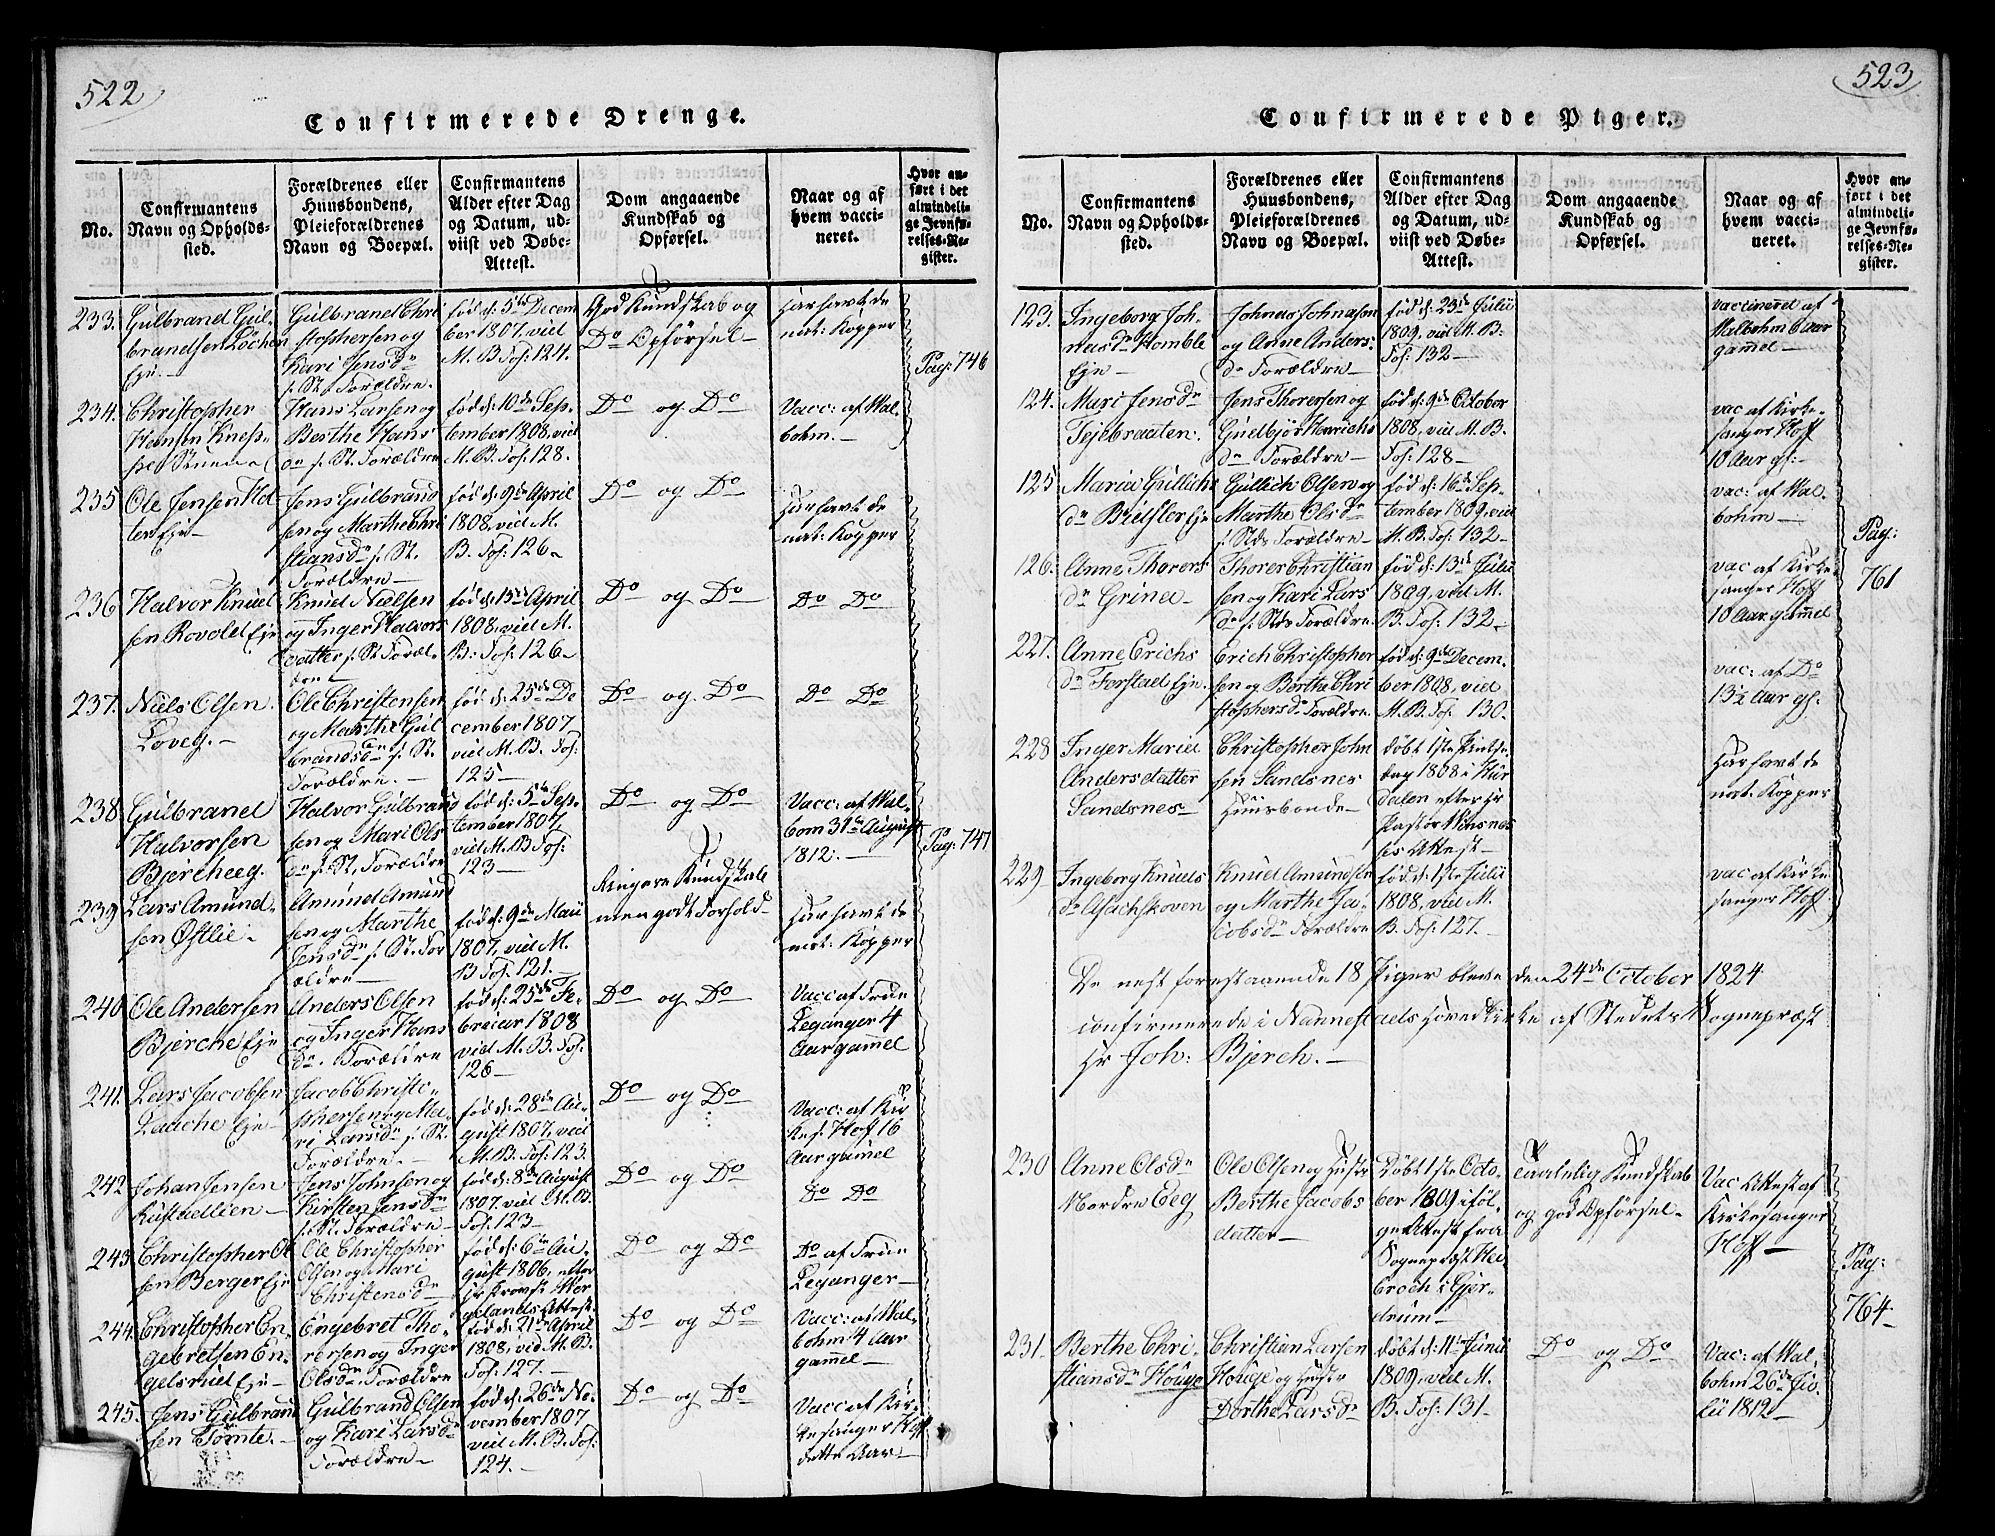 522
Confirmerede Drenge.
No.
Confirmantens
Navn og Opholds-
sted.
Forældrenes eller
Huusbondens,
Pleieforældrenes
Navn og Boepæl.
Confirmantens
Alder efter Dag
og Datum, ud-
viist ved Døbe-
Attest.
Dom angaaende
Kundskab og
Opførsel.
Naar og af
hvem vacci-
neret.
Hvor an-
ført i det
almindeli-
ge Jevnfø-
relses-Re-
gister.
233.
Gulbrand Gul-
brandsen Løchen
Eje.
Gulbrand Chri
stophersen og
Kari Jensdr
f. St. Forældre.
fød d: 5te Decem
ber 1807, vid
M. B. Fol: 124.
God Kundskab og
Do Opførsel
har havt de
nat: Kopper
Pag: 746
234.
Christopher
Hansen Knep-
pe Stuen
Hans Larsen og
Berthe Hans
dr f. St. Forældre
fød d: 10de Sep-
tember 1808, vid
M. B. Fol: 128.
Do og Do
Vacc: af Mal-
bohm.
235
Ole Jensen Hol
ter Eje
Jens Gulbrand
sen og Marthe Chri
stiansdr f. St.
Forældre
fød d: 9de April
1808, vid M.
B. Fol: 126
Do og Do
har havt de
nat: Kopper
236
Halvor Knud
sen Rovold Eje
Knud Nielsen
og Inger Halvors
datter f. St. Foræl-
dre
fød d: 15de April
1808, vid M.
B: Fol: 126
Do og Do
Do Do
237.
Niels Olsen
Loveg.
Ole Christensen
og Marthe Gul
brandsdr f. St.
Forældre.
fød d: 25de De
cember 1807
vid M. B. Fol:
125
Do og Do
Do Do
238
Gulbrand
Halvorsen
Bjercheeg.
Halvor Gulbrand
sen og Mari Ols
dr f. St. Forældre
fød d: 5te Sep-
tember 1807
vid M. B Fol:
123
Do og Do
Vacc: af Mal-
bom 31te August
1812.
Pag: 747
239
Lars Amund-
sen Østlie
Amund Amund
sen og Marthe
Jensdr f. St. For
ældre
fød d: 9de Maii
1807, vid M.
B Fol: 121.
Ringere Kundskab
men godt Forhold
har havt de
nat: Kopper
240
Ole Andersen
Bjerche Eje
Anders Olsen
og Inger Hans
dr. Forældre
fød d: 25de Fe-
bruar 1808
vid M. B. Fol:
126
Do og Do
Vacc af Frue
Leganger 4
Aar gammel
241.
Lars Jacobsen
Lauche Eje
Jacob Christo-
phersen og Ma-
ri Larsdr f. St.
Forældre.
fød d: 28de Au-
gust 1807, vid
M. B. Fol: 123.
Do og Do
Vacc: af Kir
kes. Hoff 16
Aar gamel
242
Johan Jensen
Rustadlien
Jens Johnsen og
Kirsten Jensdr
f. St. Forældre
fød d: 8de August
1807, vid M. B.
Fol: 123
Do og Do
Do Do
243
Christopher Ol
sen Berger Eje
Ole Christopher
Olsen og Mari
Christensdr
fød d: 6te Au-
gust 1806, efter
Hr Provst Wer
gelands Attest.
Do og Do
Do af Frue
Leganger
244.
Christopher En-
gebretsen En-
gelsrud Eje
Engebret Tho-
rersen og Inger
Olsdr. Forældre
fød d: 21de April
1808, vid M. B.
Fol: 127
Do og Do
Vacc: af Mal-
bohm 4 Aar
gammel
245.
Jens Gulbrand
sen Tømte.
Gulbrand Olsen
og Kari Larsdr
Forældre
fød d: 26de No-
vember 1807
vid M. B. Fol:
124.
Do og Do
Vacc af Kir-
kesanger Hoff
dette Aar
523
Confirmerede Piger.
No.
Confirmantens
Navn og Opholds-
sted.
Forældrenes eller
Huusbondens,
Pleieforældrenes
Navn og Boepæl.
Confirmantens
Alder efter Dag
og Datum, ud-
viist ved Døbe-
Attest.
Dom angaaende
Kundskab og
Opførsel.
Naar og af
hvem vacci-
neret.
Hvor an-
ført i det
almindeli-
ge Jevnfø-
relses-Re-
gister.
123.
Ingeborg Joh-
nasdr Homble
Eje
Johnas Johnassen
og Anne Anders-
dr Forældre
fød d: 23de Julii
1809, vid M. B.
Fol: 132
vaccineret af
Malbohm 6 aar
gammel
124.
Mari Jensdr
Tejebraaten.
Jens Thoresen og
Gudbjør Henrichs
dr Forældre
fød d: 9de October
1808, vid M. B.
Fol: 128
vac af Kirke-
sanger Hoff
10 Aar gl:
125
Maria Gullichs
dr Bidsler Eje
Gullich Olsen og
Marthe Olsdr
f. Stds Forældre
fød d: 16de Sep-
tember 1809, vid
M. B. Fol: 132
vac: af Mal-
bohm
Pag:
761
126.
Anne Thorers
dr Grina
Thorer Christian
sen og Kari Lars
dr f. Stds Forældre.
fød d: 13de Julii
1809, vid M.
B. Fol: 132
vac af Kirke
sanger Hoff
10 Aar gammel
227.
Anne Erichs
dr Forstad Eje.
Erich Christopher
sen og Berthe Chri
stophersdr Forældre.
fød d: 9de Decem-
ber 1808, vid
M. B. Fol. 130
vac: af Do
13½ Aar gl.
228
Inger Marie
Andersdatter
Sandsnes
Christopher John
sen Sandsnes
Huusbonde
døbt 1ste Pintse
dag 1808 i Hur
dalen efter Hr
Pastor Winsnes
ses Attest
Har havt de
nat. Kopper
229
Ingeborg Knuds
dr Asachskoven
Knud Amundsen
og Marthe Ja-
cobsdr Forældre
fød d: 1ste Julii
1808, vid M.
B. Fol: 127.
vac af Kirke
sanger Hoff
De nest forestaaende 18 Piger bleve den 24de October 1824
confirmerede i Nannestads Hovedkirke af Stedets Sognepræst
Hr Joh: Bjerch.
230
Anne Olsdr
Nordre Eeg
Ole Olsen og Hustr
Berthe Jacobs
datter
Døbt 1ste Octo-
ber 1809 iføl-
ge Attest fra
Sognepræst Hel
broch i Gjer-
drum
Taalelig Kundskab
og god Opførsel
Vac Attest af
Kirkesanger
Hoff
Pag:
764
231
Berthe Chri-
stiansdr Houge
Christian Larsen
Houge og Hustr
Dorthe Larsdr
døbt d: 11te Junii
1809, vid M.
B. Fol: 131
Do og Do
Vac: af Mal-
bohm 26de Ju-
lii 1812